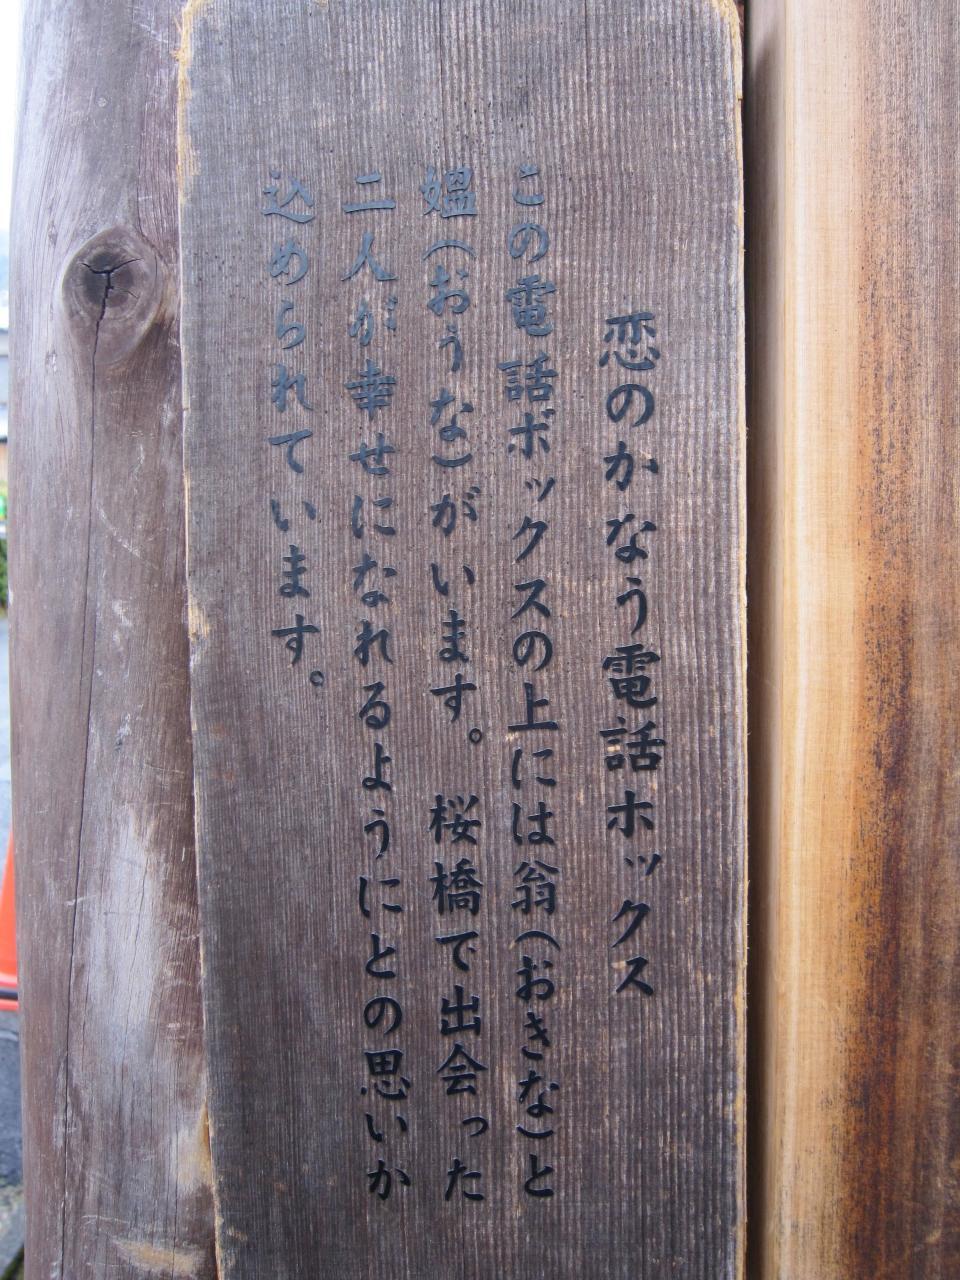 恋のかなう電話ホックス
この電話ボックスの上には翁（おきな）と
媼（おうな）がいます。桜橋で出会った
二人が幸せになれるようにとの思いか
込められています。